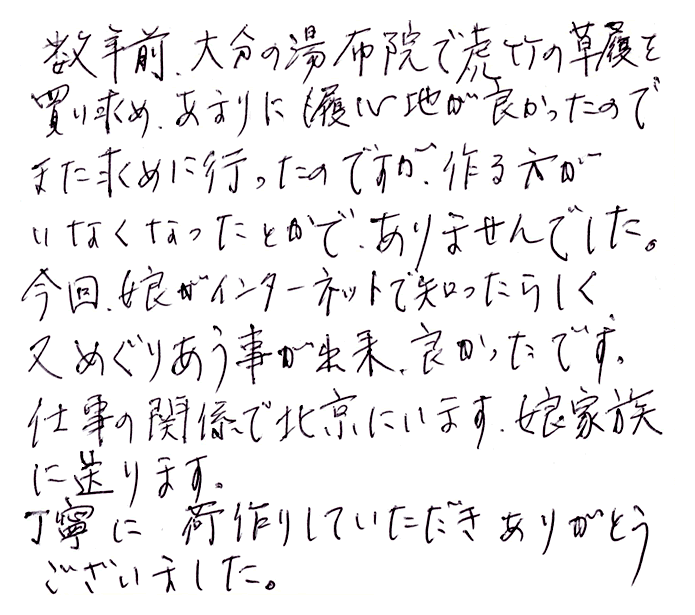 数年前、大分の湯布院で虎竹の草履を
買い求め、あまりに履心地が良かったので
また求めに行ったのですが、作る方が
いなくなったとかで、ありませんでした。
今回、娘がインターネットで知ったらしく
又めぐりあう事が出来、良かったです。
仕事の関係で北京にいます、娘家族
に送ります。
丁寧に 荷作りしていただきありがとう
ございました。